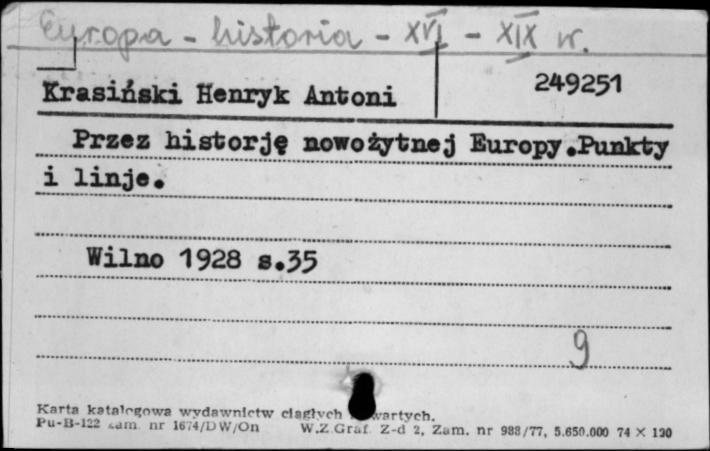 Europa - historia - XVI - XIX w.
249251
Krasiński Henryk Antoni
Przez historję nowożytnej Europy.Punkty
i linje.
Wilno 1928 s.35
9
Karta katalogowa wydawnictw ciągłych wartych.
Pu-B-122 zam. nr 1674/DW/On W.Z.Graf. Z-d 2, Zam. nr 988/77, 5.650.000 74 X 120